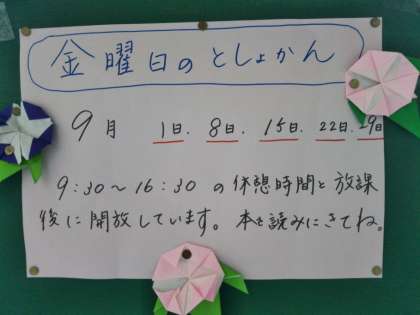 金曜日のとしょかん
9月 1日. 8日. 15日. 22日. 29日
9:30〜16:30 の休憩時間と放課
後に開放しています。本を読みにきてね。